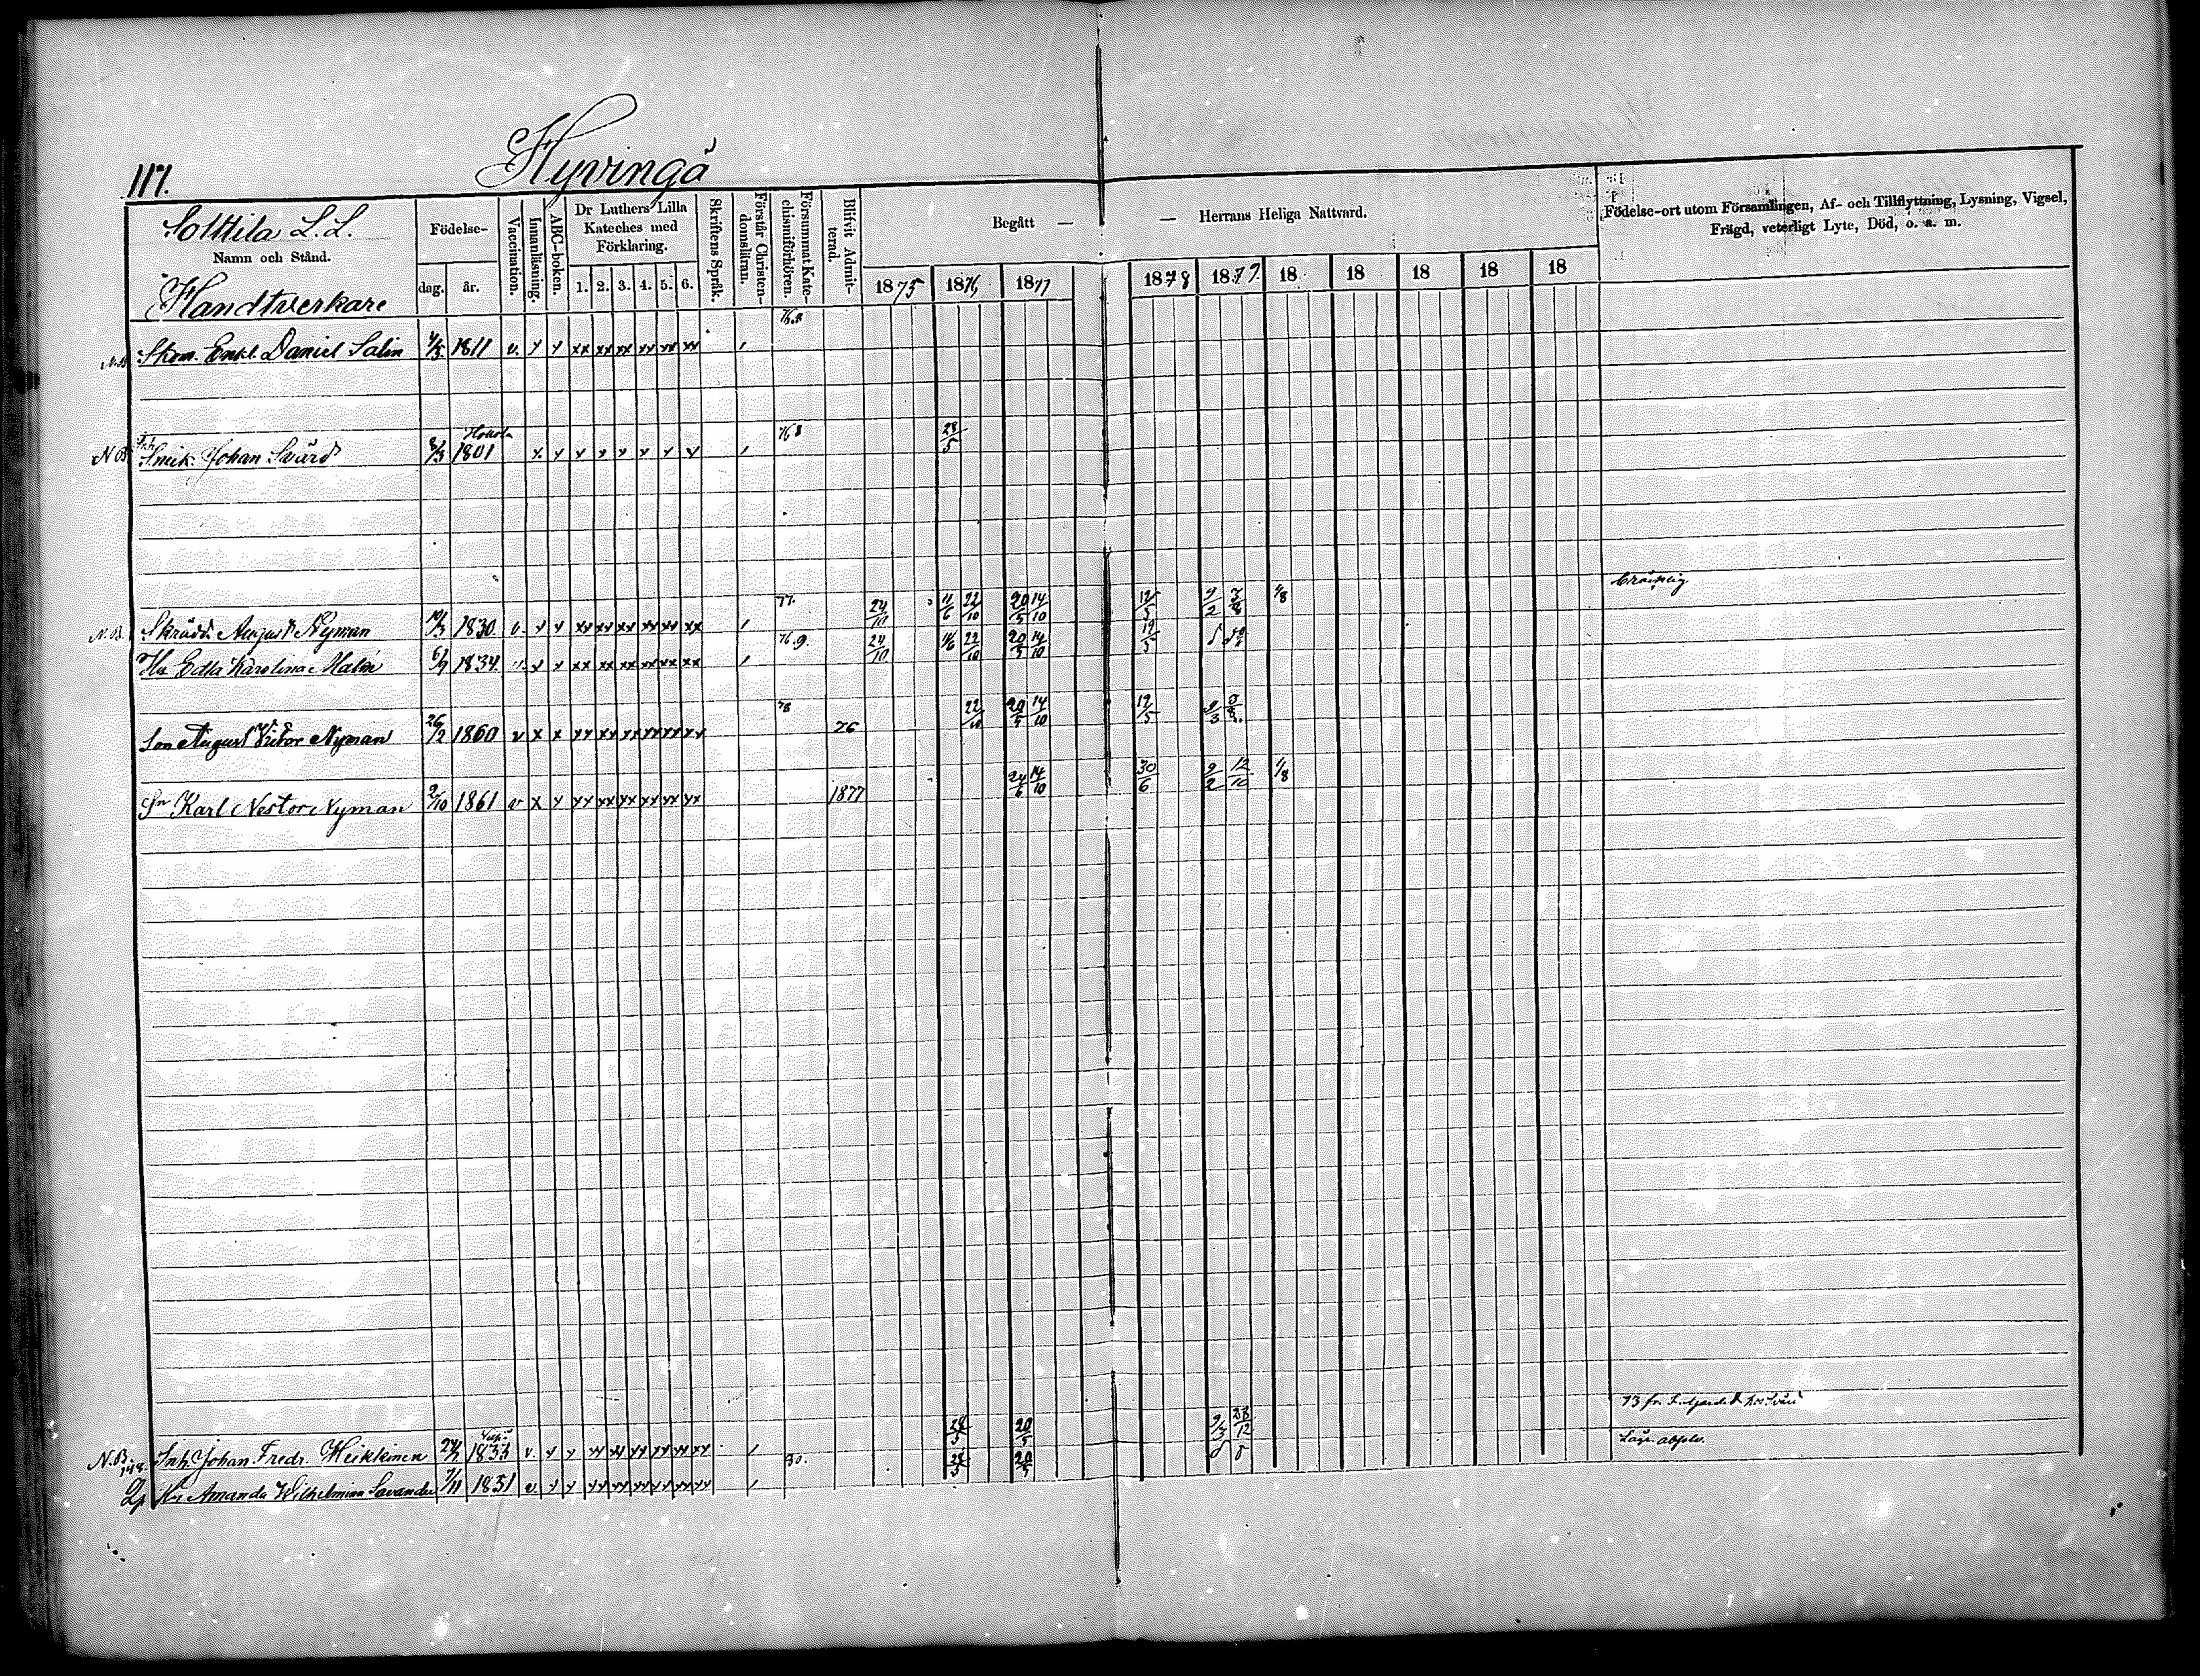 117.
Hyvingä
Sotttila L. L.
Namn och Stånd.
Handtverkare
Födelse-
dag.
år.
Vaccination.
Innanläsning.
ABC-boken.
Dr Luthers Lilla
Kateches med
Förklaring.
1. 2. 3. 4. 5. 6.
Skriftens Språk.
Förstår Christen-
domsläran.
Försummat Kate-
chismiförhören.
Blifvit Admit-
terad.
Begått — — Herrans Heliga Nattvard.
1875 1876 1877 1878 1879. 18 18 18 18 18
Födelse-ort utom Församlingen, Af- och Tillflyttning, Lysning, Vigsel,
Frägd, veterligt Lyte, Död, o. s. m.
N.B. Skom. Enkl. Daniel Salin 1811 v. x x xx xx xx xx xx xx
Hollola
N.B. Snick. Johan Svärd 1801 x x x x x x x x 28/5
N.B. Skrädd. August Nyman 1830 v. x x xx xx xx xx xx xx 77. 24/10 11/6 22/10 20/5 14/10 12/5 9/2 1/8
Hu Edla Karolina Malin 6/9 1834 x x xx xx xx xx xx xx 76.9. 24/10 11/6 22/10 20/5 14/10 19/5
Son August Viktor Nyman 26/12 1860 v x x xx xx xx xx xx xx 78 76 22/10 20/5 14/10 12/5 9/3
Sn Karl Nestor Nyman 2/10 1861 v x x xx xx xx xx xx xx 1877 24/6 14/10 30/6 9/2 12/10 1/8
N.B. 148. Inh. Johan Fredr. Heikkinen 1833 v. x x xx xx xx xx xx xx 28/5 20/5 9/3 28/12
Hu Amanda Wilhelmina Savander 7/11 1831 v. x x xx xx xx xx xx xx 80. 28/5 20/5